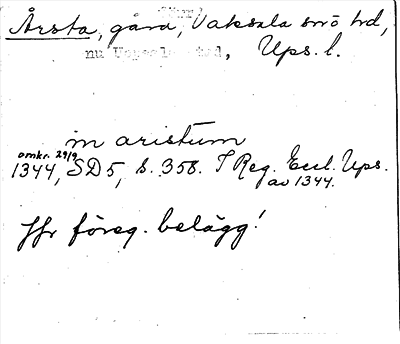 Årsta, gård, Vaksala sn i hd,
nu Uppsala stad, Ups. l.
in aristum
omkr. 29/9
1344, SD 5, s. 358. I Reg. Eccl. Ups.
av 1344.
Jfr föreg. belägg!